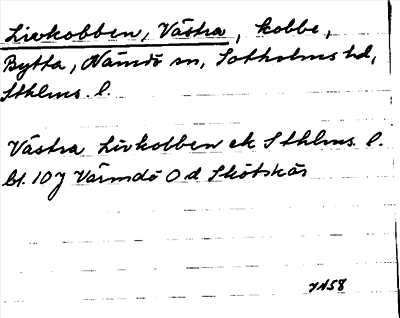 Livkobben, Västra, kobbe,
Bytta, Nämdö sn, Sotholms hd,
Sthlms l.
Västra Livkobben ek Sthlms l.
bl. 10 J Värmdö Od Skötskär